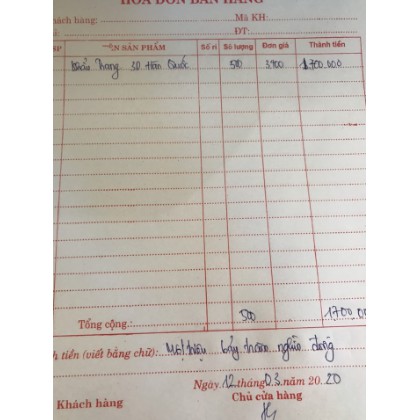 HÓA ĐƠN BÁN HÀNG
hách hàng: Mã KH:
ĐT:
SP TÊN SẢN PHẨM Số ri Số lượng Đơn giá Thành tiền
Khẩu Trang 3D Hàn Quốc 500 1.700.000
Tổng cộng: 500 1700.00
h tiền (viết bằng chữ): Một triệu bảy trăm nghìn đồng
Ngày 12 tháng 03 năm 2020
Khách hàng Chủ cửa hàng